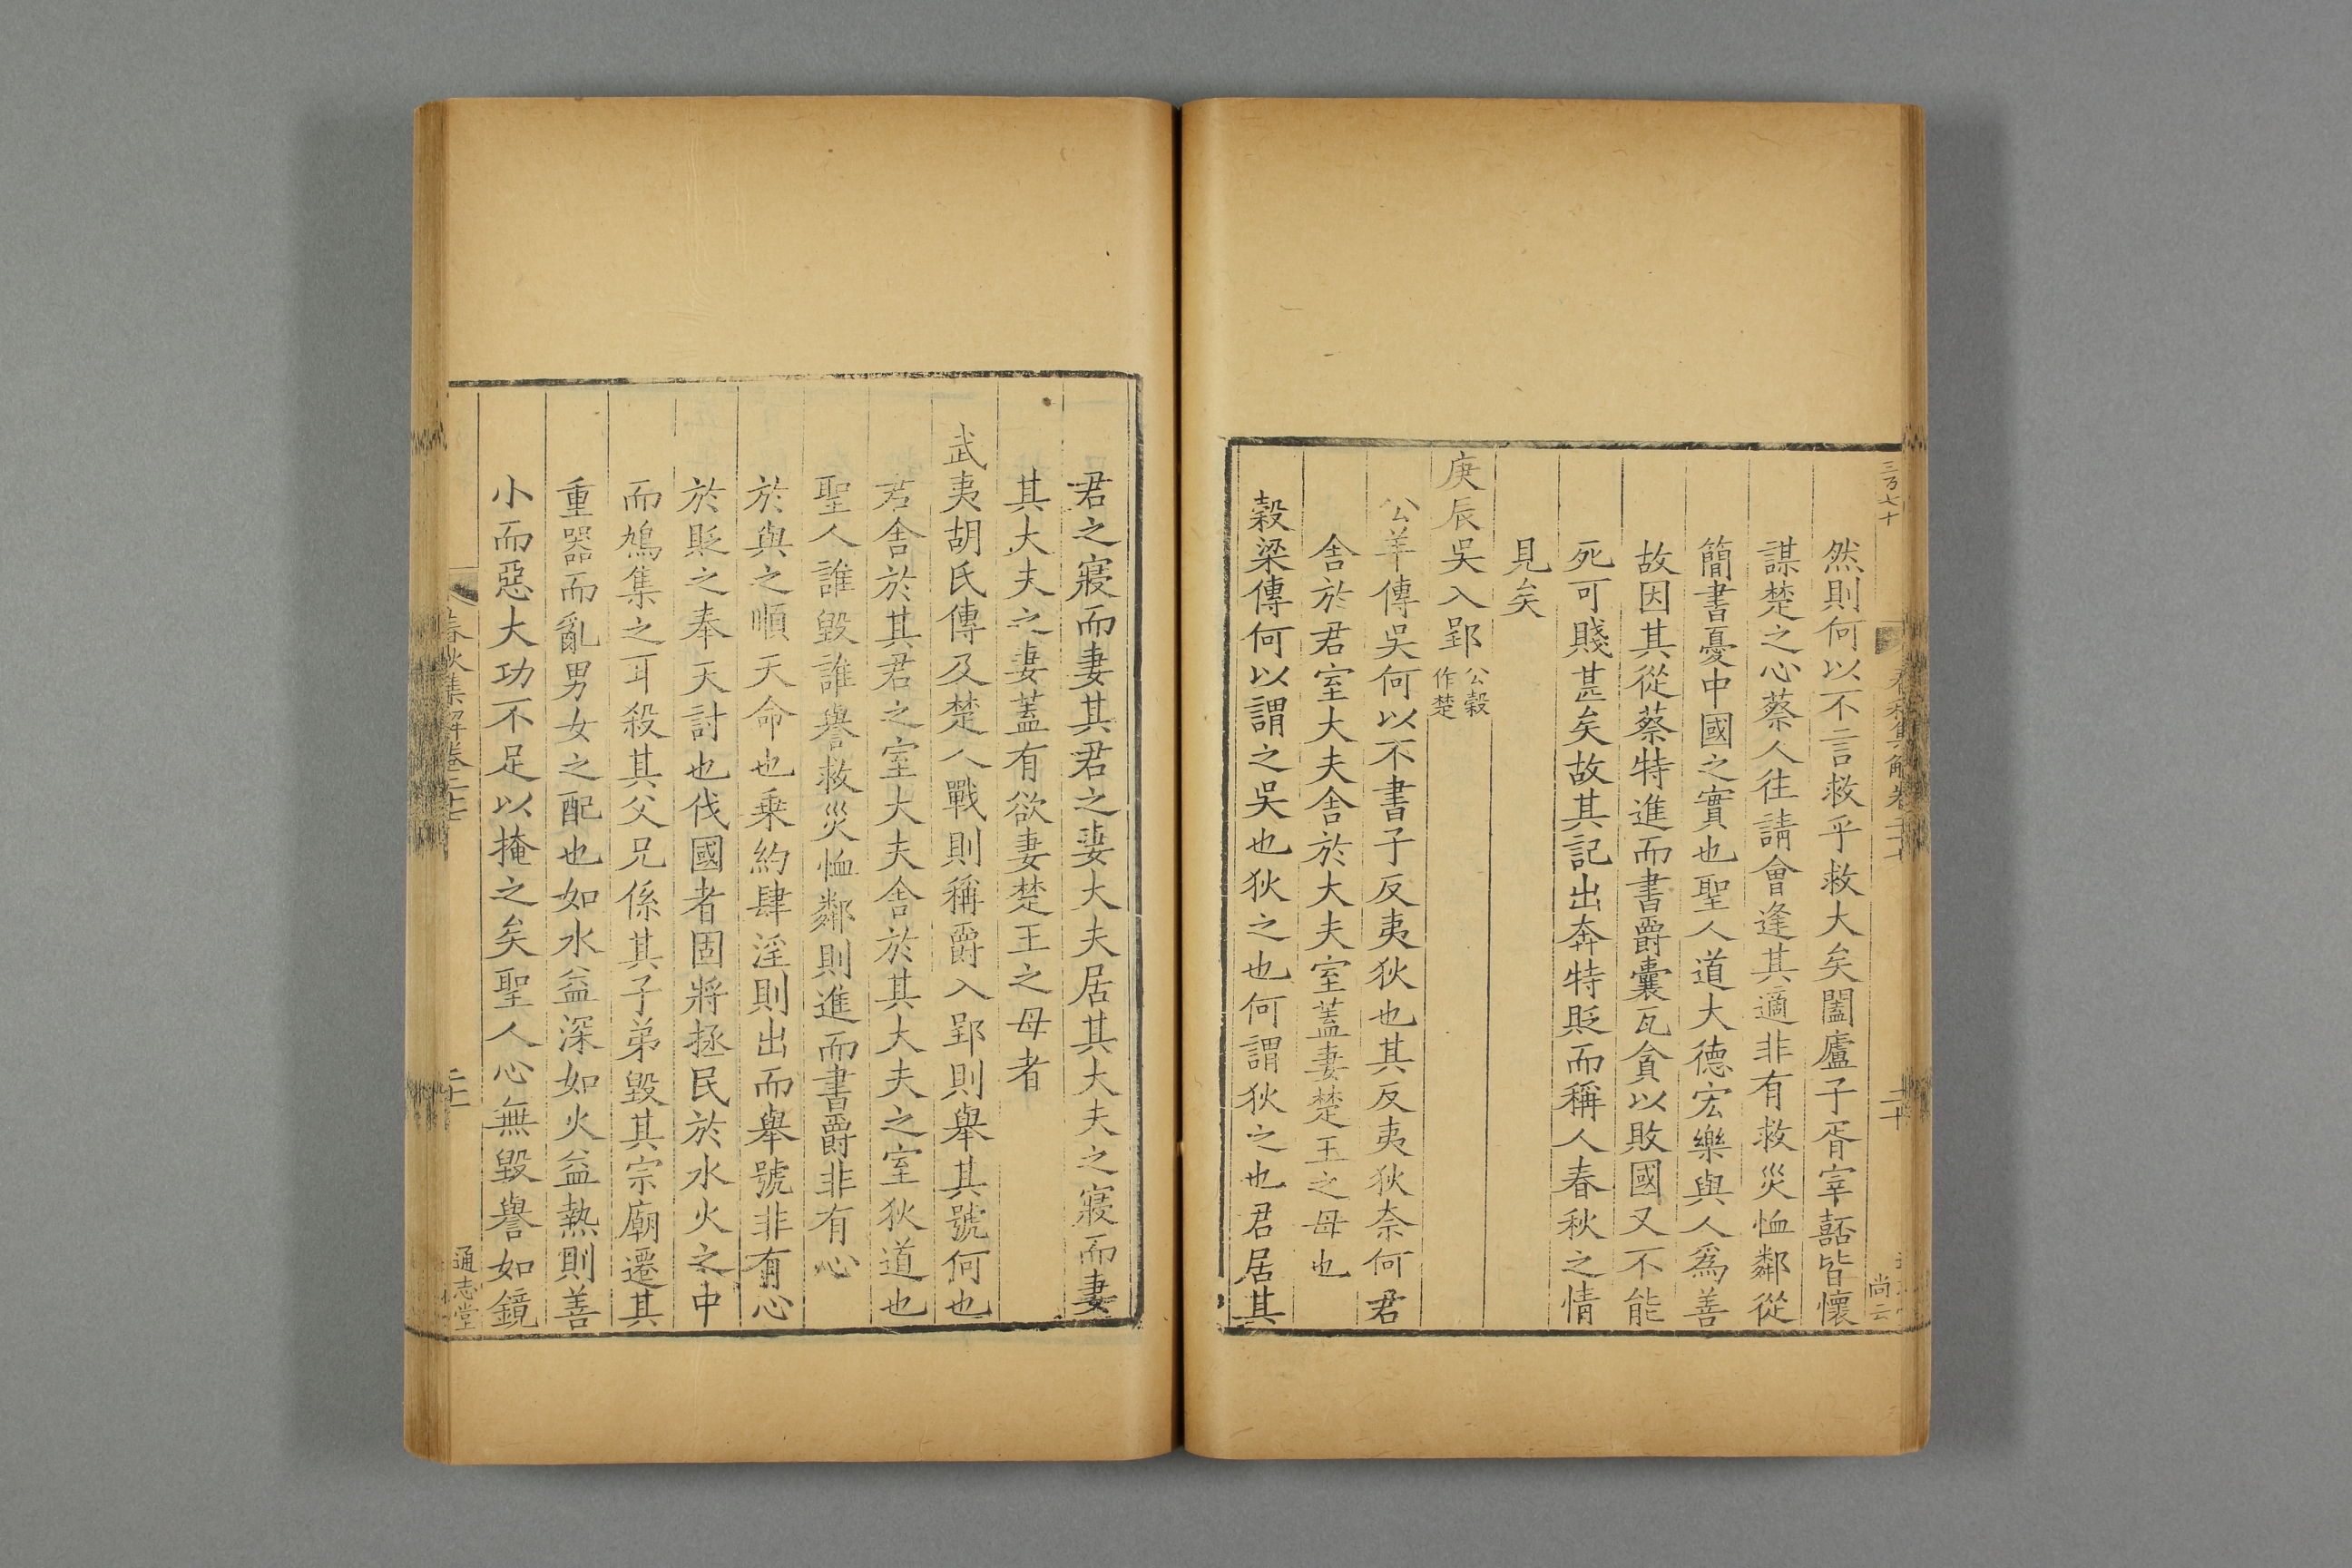 春秋集解卷二十七
尚云
然則何以不言救乎救大矣闔廬子胥宰嚭皆懷
謀楚之心蔡人往請會逢其適非有救災恤鄰從
簡書憂中國之實也聖人道大德宏樂與人爲善
故因其從蔡特進而書爵囊瓦貪以敗國又不能
死可賤甚矣故其記出奔特貶而稱人春秋之情
見矣
庚辰吳入郢公穀作楚
公羊傳吳何以不書子反夷狄也其反夷狄奈何君
舍於君室大夫舍於大夫室蓋妻楚王之母也
穀梁傳何以謂之吳也狄之也何謂狄之也君居其
君之寢而妻其君之妻大夫居其大夫之寢而妻
其大夫之妻蓋有欲妻楚王之母者
武夷胡氏傳及楚人戰則稱爵入郢則舉其號何也
君舍於其君之室大夫舍於其大夫之室狄道也
聖人誰毀誰譽救災恤鄰則進而書爵非有心
於與之順天命也乗約肆淫則出而舉號非有心
於貶之奉天討也伐國者固將拯民於水火之中
而鳩集之耳殺其父兄係其子弟毀其宗廟遷其
重器而亂男女之配也如水益深如火益熱則善
小而惡大功不足以掩之矣聖人心無毀譽如鏡
春秋集解卷二十七
通志堂